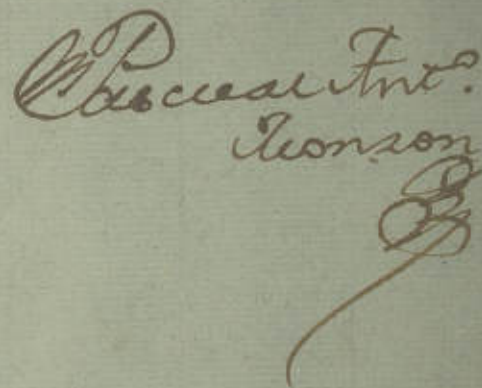 Pascual Ant.º
Monson